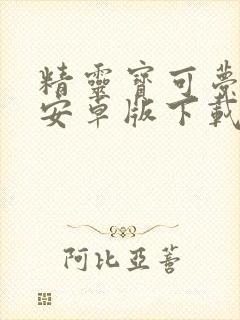 精靈寶可夢
安卓版下載
阿比亞薈